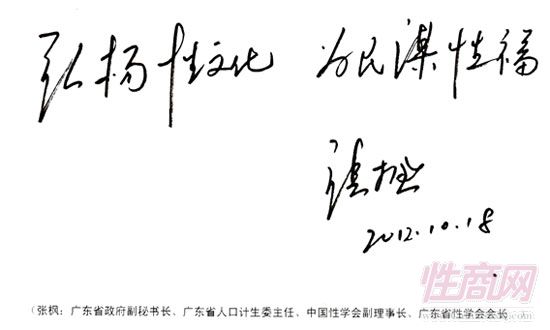 弘扬性文化 为民谋性福
张枫
2012.10.18
性商网
(张枫:广东省政府副秘书长、广东省人口计生委主任、中国性学会副理事长、广东省性学会会长